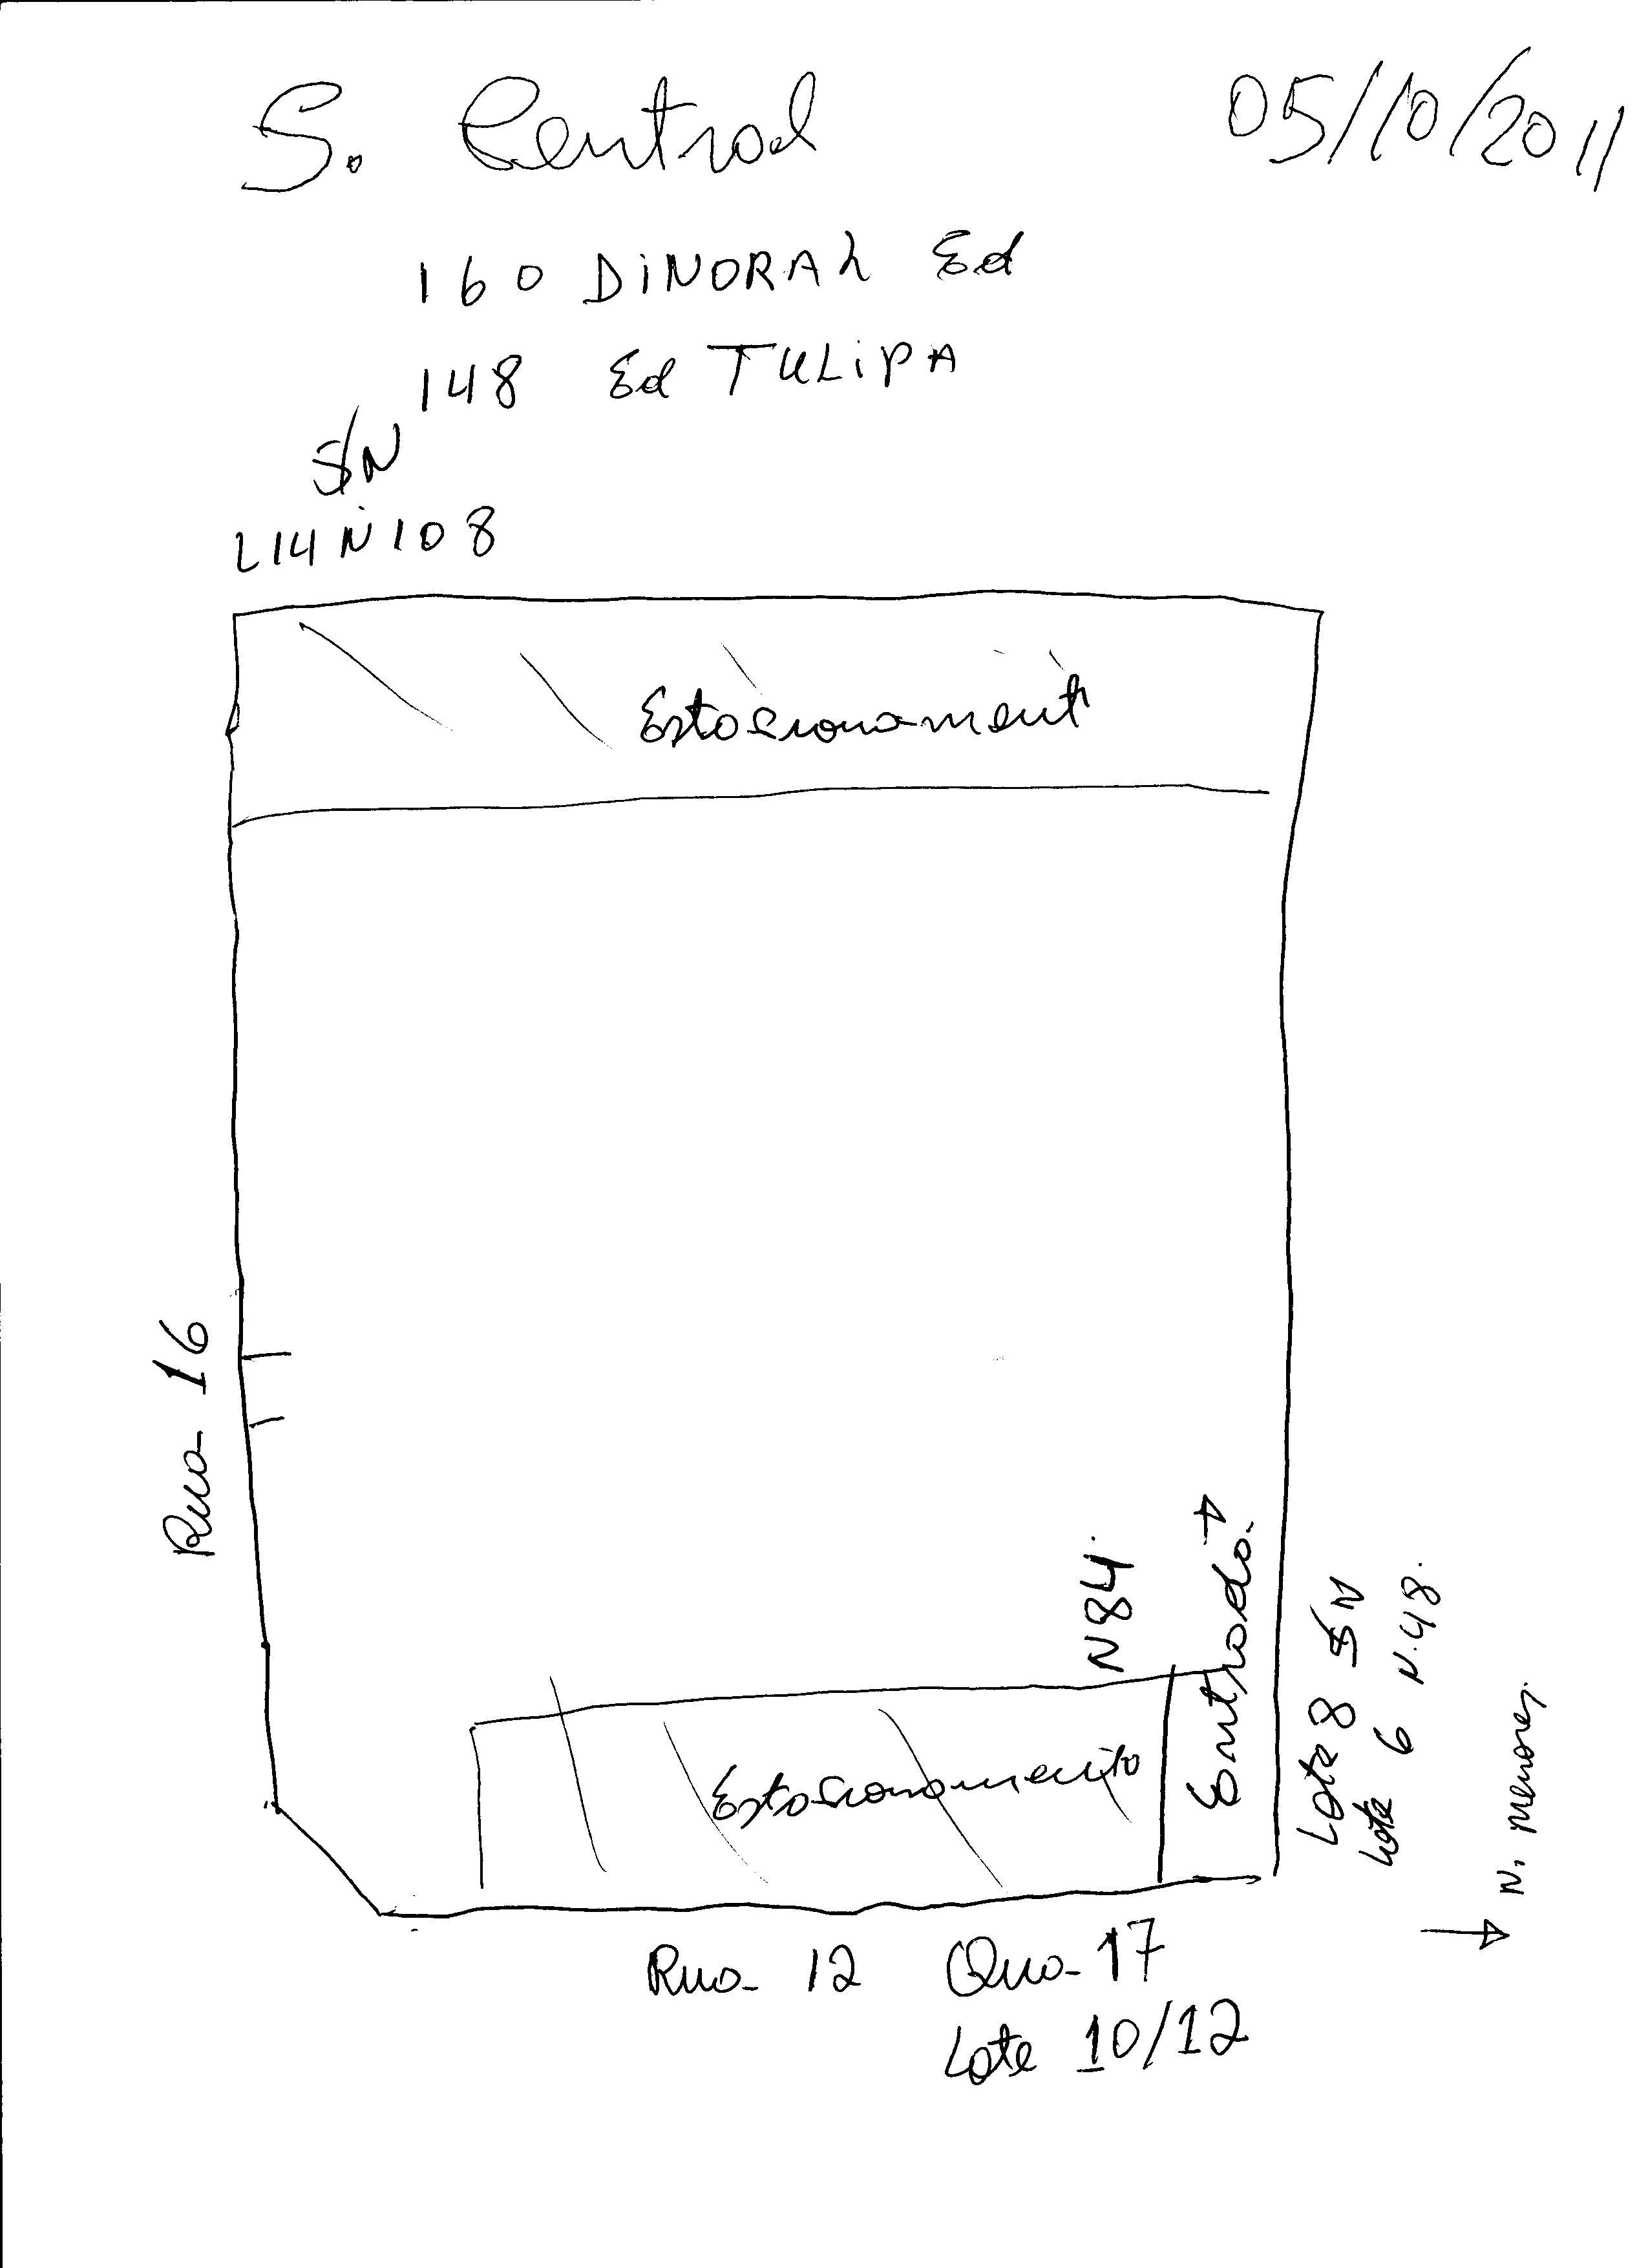 S. Central 05/10/2011
160 DiNORAh Ed
148 Ed TULiPA
S/N
L14 N 108
Estacionament
Rua 16
N84.
Entrada.
Estacionamento
Lote 8 SN
Lote 6 N.48.
N. menores.
Rua 12 Qua 17
Lote 10/12